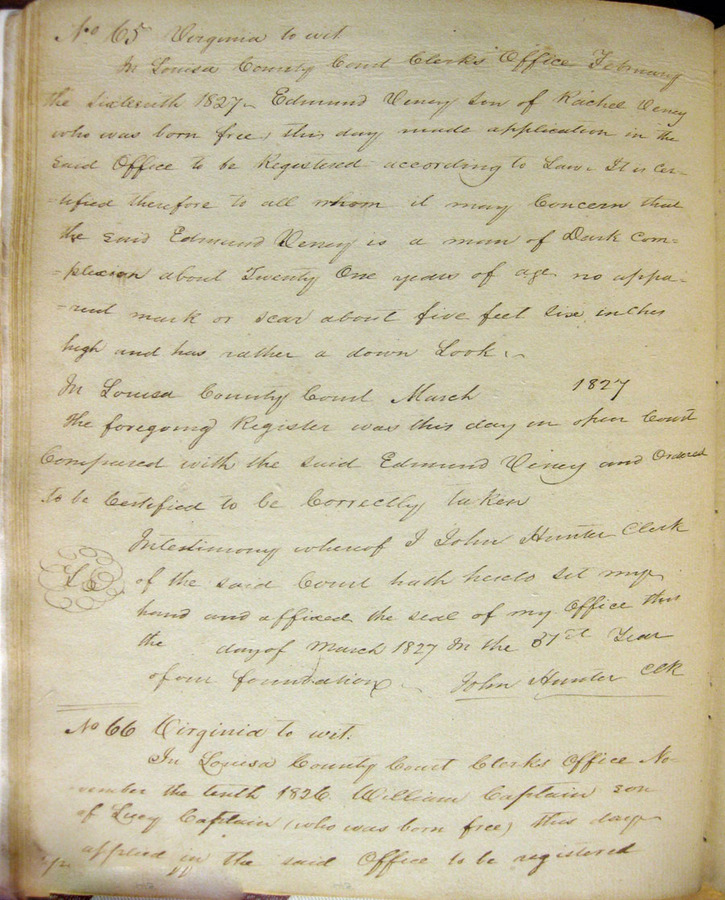 No 65 Virginia to wit
In Louisa County Court Clerks Office February
the sixteenth 1827 - Edmund Viney son of Rachel Viney
who was born free, this day made application in the
said Office to be Registered according to Law. It is Cer=
=tified therefore to all whom it may Concern that
the said Edmund Viney is a man of Dark Com=
=plexion about Twenty One years of age no appa=
=rent mark or scar about five feet six inches
high and has rather a down Look.
In Louisa County Court March 1827
The foregoing Register was this day in open Court
Compared with the said Edmund Viney and Ordered
to be Certified to be Correctly taken
In testimony whereof I John Hunter Clerk
of the said Court hath hereto set my
hand and affixed the seal of my Office this
the day of March 1827 In the 51st Year
of our foundation John Hunter Clk
No 66 Virginia to wit.
In Louisa County Court Clerks Office No=
=vember the tenth 1826 William Captain son
of Lucy Captain (who was born free) this day
applied in the said Office to be registered